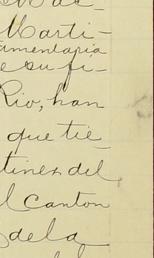 Marti-
amentaria
e su fi-
Rio, han
que tie-
tinez del
l Canton
de la